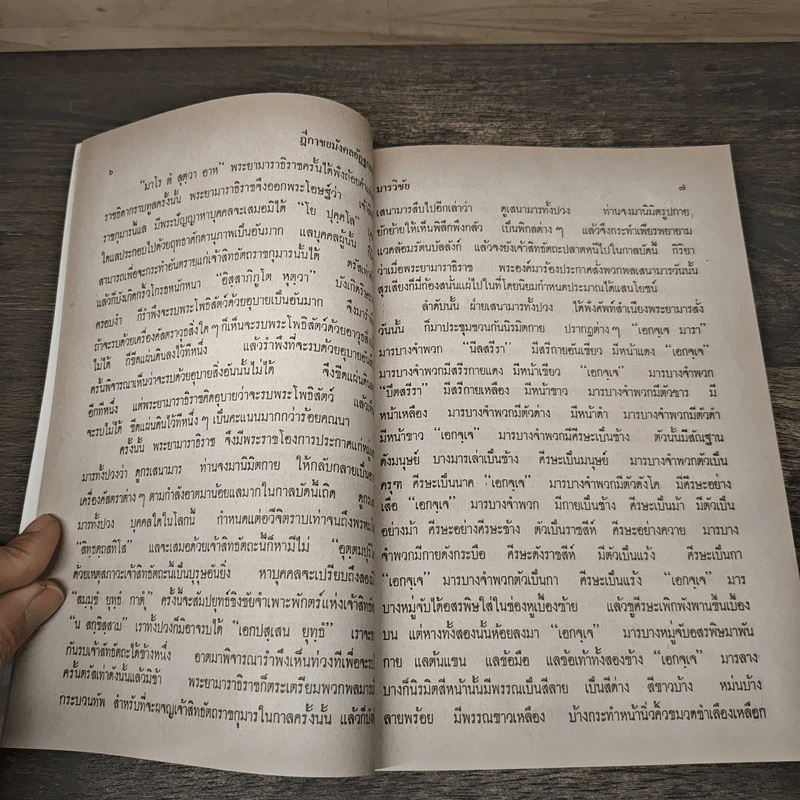 ฎีกาชยมังคลอัฏฐก
๖
“มาโร ตํ สุตฺวา อาห” พระยามาราธิราชครั้นได้ฟังถ้อยคำ
ราชธิดากราบทูลครั้งนั้น พระยามาราธิราชจึงออกพระโอษฐ์ว่า เจ้าสิท
ราชกุมารนี้แล มีพระปัญญาหาบุคคลจะเสมอมิได้ “โย ปุคฺคโล”
ใดแลประกอบไปด้วยฤทธาศักดานุภาพเป็นอันมาก แลบุคคลผู้นั้น
สามารถเพื่อจะกระทำอันตรายแก่เจ้าสิทธัตถราชกุมารนั้นได้ ตรัสเท่า
แล้วก็บังเกิดกริ้วโกรธหนักหนา “อิสฺสาภิภูโต หุตฺวา” บังเกิดริษ
ครอบงำ ก็รำพึงจะรบพระโพธิสัตว์ด้วยอุบายเป็นอันมาก จึงมารำ
ถ้าจะรบด้วยเครื่องศัสตราวุธสิ่งใด ๆ ก็เห็นจะรบพระโพธิสัตว์ด้วยอาวุธสิ่ง
ไม่ได้ ก็ขีดแผ่นดินลงไว้ทีหนึ่ง แล้วรำพึงที่จะรบด้วยอุบายอัน
ครั้นพิจารณาเห็นว่าจะรบด้วยอุบายสิ่งอันนั้นไม่ได้ จึงขีดแผ่นดินล
อีกทีหนึ่ง แต่พระยามาราธิราชคิดอุบายว่าจะรบพระโพธิสัตว์ แล้วเห็น
จะรบไม่ได้ ขีดแผ่นดินไว้ทีหนึ่ง ๆ เป็นคะแนนมากกว่าร้อยคณนา
ครั้งนั้น พระยามาราธิราช จึงมีพระราชโองการประกาศแก่หมู่
มารทั้งปวงว่า ดูกรเสนามาร ท่านจงมานิมิตกาย ให้กลับกลายเป็น
เครื่องศัสตราต่าง ๆ ตามกำลังอาตมาน้อยแลมากในกาลบัดนี้เถิด ดูกร
มารทั้งปวง บุคคลใดในโลกนี้ กำหนดแต่อวีจิตราบเท่าจนถึงพรหม
“สิทฺธตฺถสทิโส” แลจะเสมอด้วยเจ้าสิทธัตถะนี้ก็หามีไม่ “อุตฺตมปุริ
ด้วยเหตุสภาวะเจ้าสิทธัตถะนี้เป็นบุรุษอันยิ่ง หาบุคคลจะเปรียบถึงสอง
“สมฺมุขํ ยุทฺธํ กาตุํ” ครั้งนี้จะสัมปยุทธชิงชัยจำเพาะพักตร์แห่งเจ้าสิทธัต
“น สกฺขิสฺสาม” เราทั้งปวงก็มิอาจรบได้ “เอกปสฺเสน ยุทฺธํ” เราจะ
กันรบเจ้าสิทธัตถะได้ข้างหนึ่ง อาตมาพิจารณารำพึงเห็นท่วงทีเพื่อจะ
ครั้นตรัสเท่าดังนั้นแล้วมิช้า พระยามาราธิราชก็ตระเตรียมพวกพลมาร
กระบวนทัพ สำหรับที่จะผจญเจ้าสิทธัตถราชกุมารในกาลครั้งนั้น แล้วก็บัง
มารวิชัย
๗
เสนามารสืบไปอีกเล่าว่า ดูเสนามารทั้งปวง ท่านจงมานิมิตรูปกาย
ยักย้ายให้เห็นพิลึกพึงกลัว เป็นพิกลต่าง ๆ แล้วจึงกระทำเพียรพยายาม
แวดล้อมรัตนบัลลังก์ แล้วจงยังเจ้าสิทธัตถะปลาตหนีไปในกาลบัดนี้ กิริยา
ว่าเมื่อพระยามาราธิราช พระองค์มาร้องประกาศสั่งพวกพลเสนามารวันนั้น
สุรเสียงก็มีก้องสนั่นแผ่ไปในที่โดยนิยมกำหนดประมาณได้แสนโยชน์
ลำดับนั้น ฝ่ายเสนามารทั้งปวง ได้ฟังศัพท์สำเนียงพระยามารสั่ง
วันนั้น ก็มาประชุมชวนกันนิรมิตกาย ปรากฏต่าง ๆ “เอกจฺเจ มารา”
มารบางจำพวก “นีลสรีรา” มีสรีรกายอันเขียว มีหน้าแดง “เอกจฺเจ”
มารบางจำพวกมีสรีรกายแดง มีหน้าเขียว “เอกจฺเจ” มารบางจำพวก
“ปีตสรีรา” มีสรีกายเหลือง มีหน้าขาว มารบางจำพวกมีตัวขาร มี
หน้าเหลือง มารบางจำพวกมีตัวด่าง มีหน้าดำ มารบางจำพวกมีตัวดำ
มีหน้าขาว “เอกจฺเจ” มารบางจำพวกมีศีรษะเป็นช้าง ตัวนั้นมีสัณฐาน
ดังมนุษย์ บางมารเล่าเป็นช้าง ศีรษะเป็นมนุษย์ มารบางจำพวกตัวเป็น
ครุฑ ศีรษะเป็นนาค “เอกจฺเจ” มารบางจำพวกมีตัวดังโค มีศีรษะอย่าง
เสือ “เอกจฺเจ” มารบางจำพวก มีกายเป็นช้าง ศีรษะเป็นม้า มีตัวเป็น
อย่างม้า ศีรษะอย่างศีรษะช้าง ตัวเป็นราชสีห์ ศีรษะอย่างควาย มารบาง
จำพวกมีกายดังกระบือ ศีรษะดังราชสีห์ มีตัวเป็นแร้ง ศีรษะเป็นกา
“เอกจฺเจ” มารบางจำพวกตัวเป็นกา ศีรษะเป็นแร้ง “เอกจฺเจ” มาร
บางหมู่จับได้อสรพิษใส่ในช่องหูเบื้องซ้าย แล้วชูศีรษะเพิกพังพานขึ้นเบื้อง
บน แต่หางทั้งสองนั้นห้อยลงมา “เอกจฺเจ” มารบางหมู่จับอสรพิษมาพัน
กาย แลต้นแขน แลข้อมือ แลข้อเท้าทั้งสองข้าง “เอกจฺเจ” มารลาง
บางก็นิรมิตสีหน้านั้นมีพรรณเป็นสีลาย เป็นสีด่าง สีขาวบ้าง หม่นบ้าง
ลายพร้อย มีพรรณขาวเหลือง บ้างกระทำหน้านิ่วคิ้วขมวดชำเลืองเหลือก